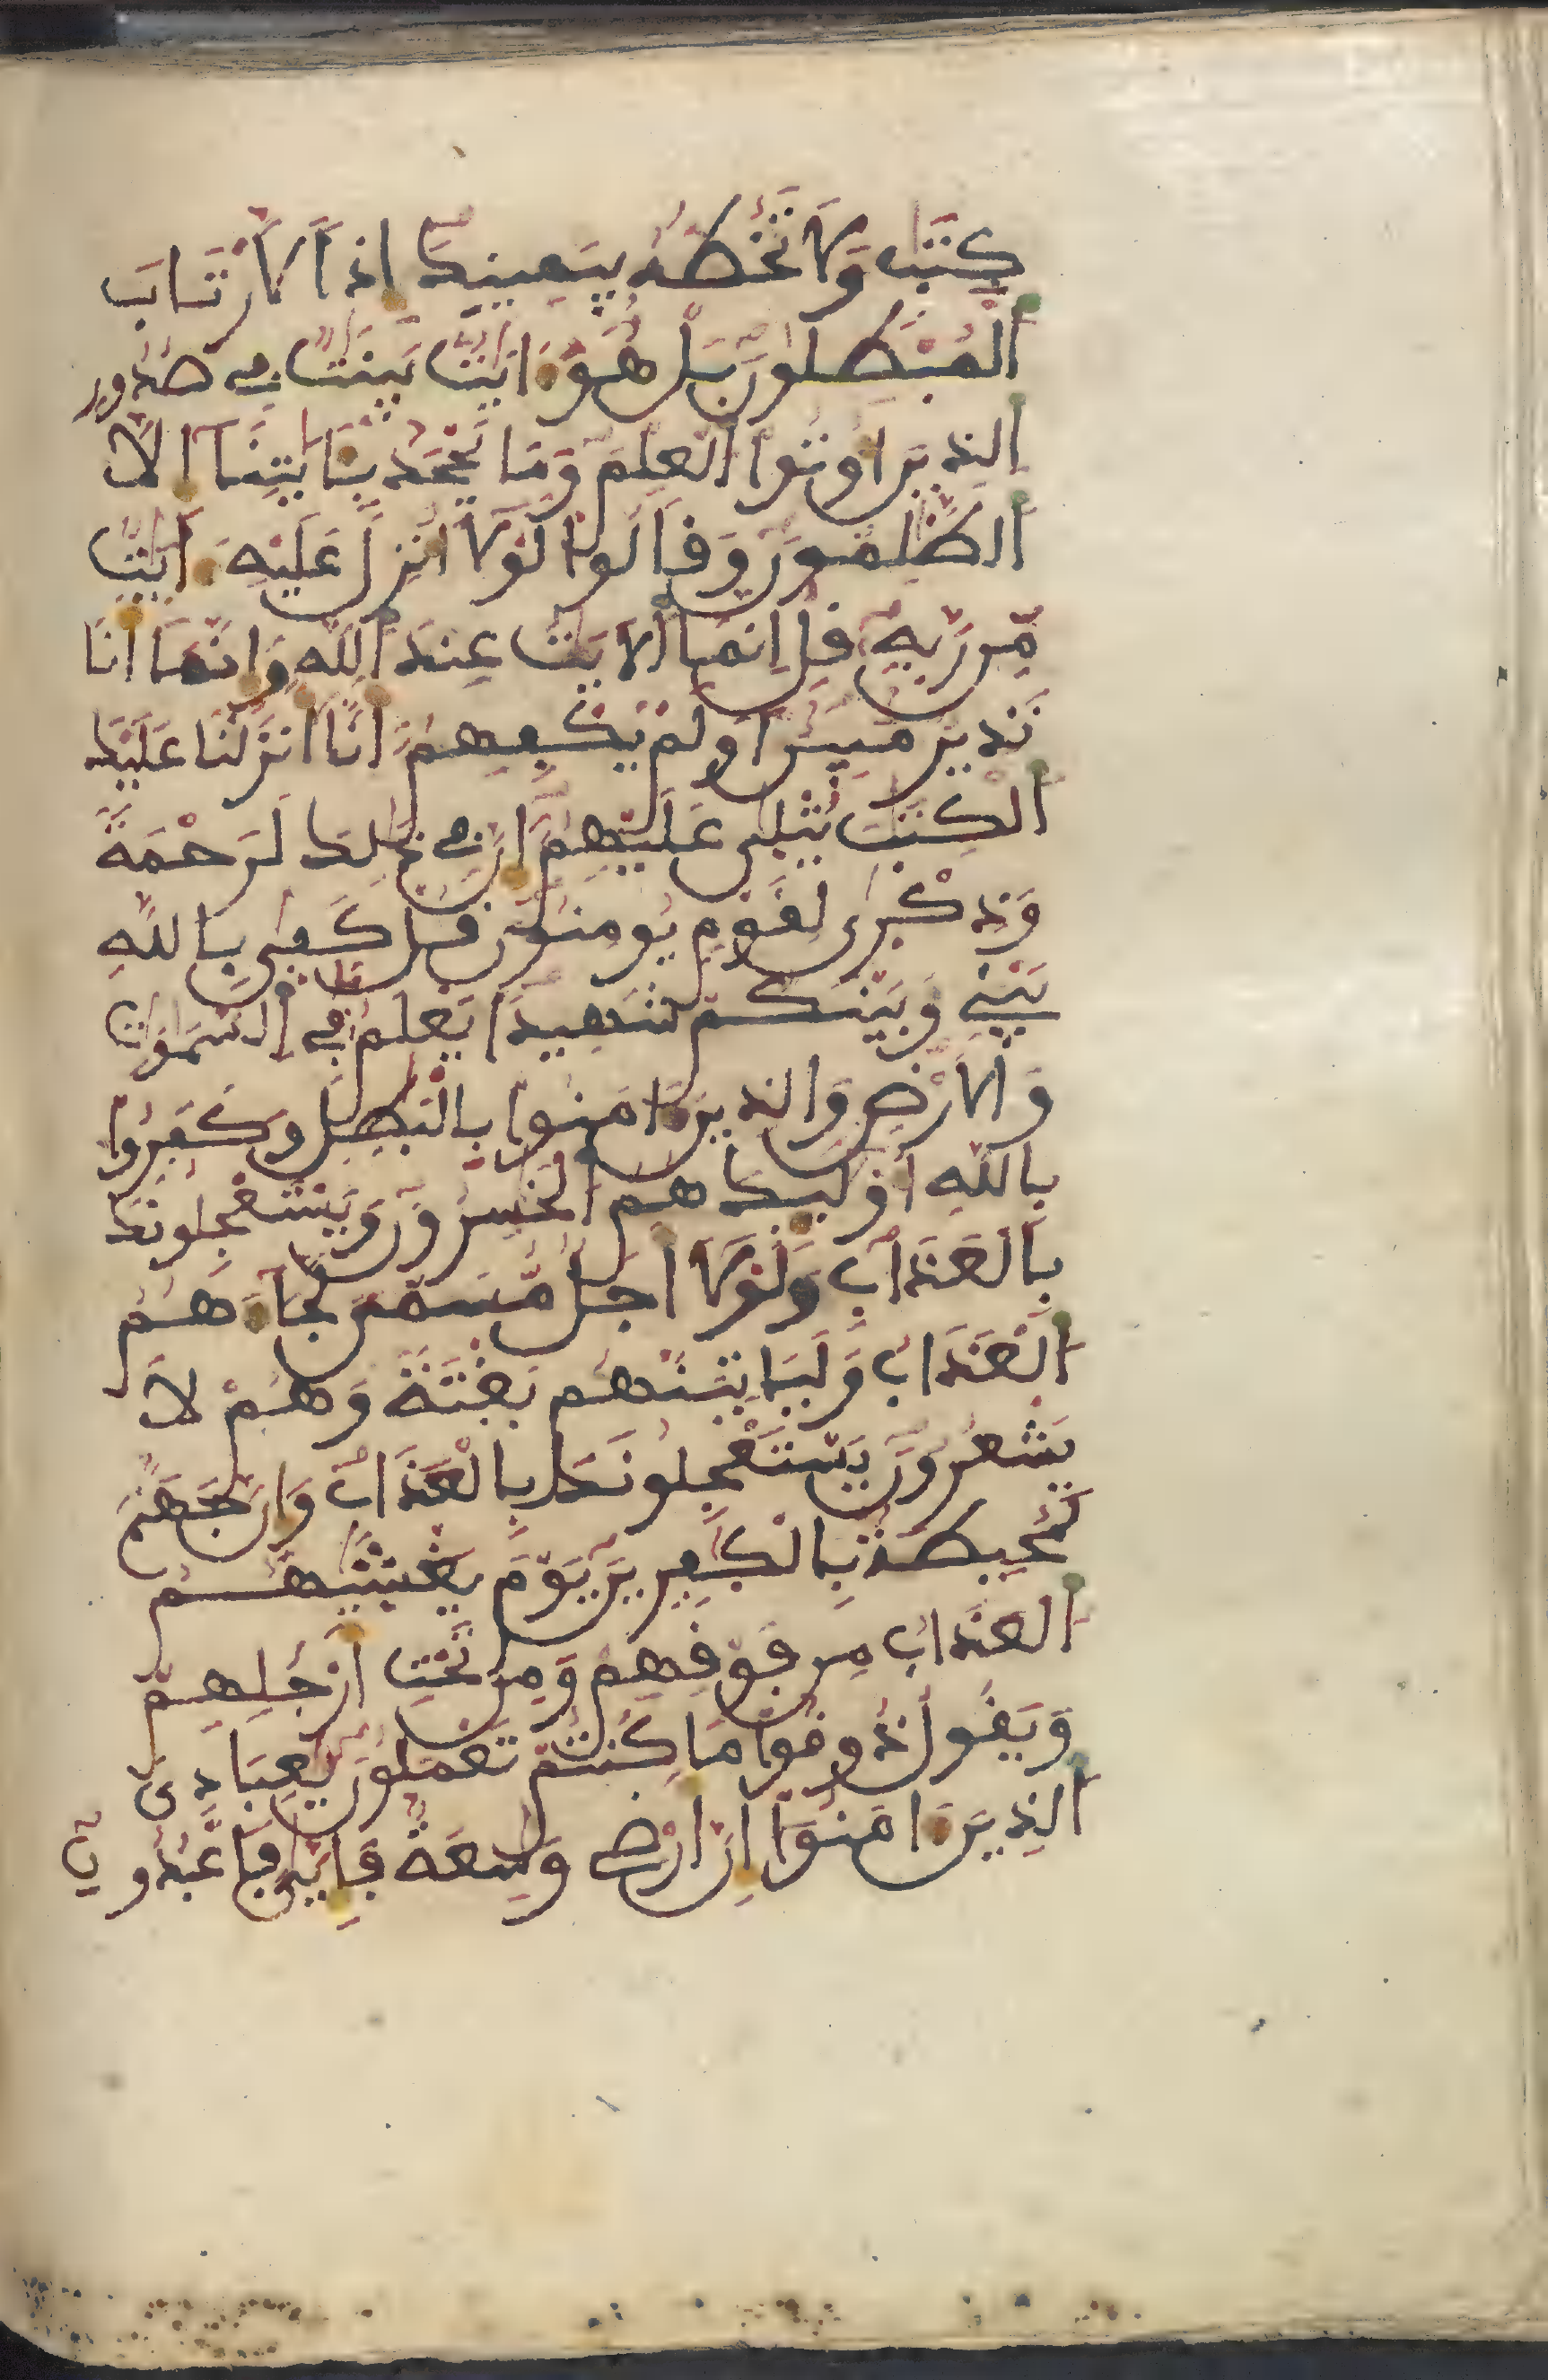 كِتَٰبٍ وَلَا تَخُطُّهُ بِيَمِينِكَ إِذًا لَّارْتَابَ
اَلْمُبْطِلُونَ بَلْ هُوَ ءَايَٰتٌ بَيِّنَٰتٌ فِے صُدُورِ
اِلذِينَ أُوتُوا اُلْعِلْمَ وَمَا يَجْحَدُ بِـَٔايَٰتِنَا إِلَّا
اَلظَّٰلِمُونَ وَقَالُوا لَوْلَا أُنزِلَ عَلَيْهِ ءَايَٰتٌ
مِّن رَّبِّهِ قُلِ انَّمَا اَلَايَٰتُ عِندَ اَللَّهِ وَإِنَّمَا أَنَا
نَذِيرٌ مُّبِينٌ أَوَلَمْ يَكْفِهِمُ أَنَّا أَنزَلْنَا عَلَيْكَ
اَلْكِتَٰبَ يُتْلَىٰ عَلَيْهِمُ إِنَّ فِے ذَٰلِكَ لَرَحْمَةً
وَذِكْرَىٰ لِقَوْمٍ يُومِنُونَ قُلْ كَفَىٰ بِاللَّهِ
بَيْنِے وَبَيْنَكُمْ شَهِيدًا يَعْلَمُ مَا فِے اِلسَّمَٰوَٰتِ
وَالَارْضِ وَالذِينَ ءَامَنُوا بِالْبَٰطِلِ وَكَفَرُوا
بِاللَّهِ أُوْلَٰئِكَ هُمُ اُلْخَٰسِرُونَ وَيَسْتَعْجِلُونَكَ
بِالْعَذَابِ وَلَوْلَا أَجَلٌ مُّسَمًّى لَّجَاءَهُمُ
اَلْعَذَابُ وَلَيَاتِيَنَّهُم بَغْتَةً وَهُمْ لَا
يَشْعُرُونَ يَسْتَعْجِلُونَكَ بِالْعَذَابِ وَإِنَّ جَهَنَّمَ
لَمُحِيطَةٌ بِالْكَٰفِرِينَ يَوْمَ يَغْشَىٰهُمُ
اَلْعَذَابُ مِن فَوْقِهِمْ وَمِن تَحْتِ أَرْجُلِهِمْ
وَيَقُولُ ذُوقُوا مَا كُنتُمْ تَعْمَلُونَ يَٰعِبَادِيَ
اَلذِينَ ءَامَنُوا إِنَّ أَرْضِے وَٰسِعَةٌ فَإِيَّٰيَ فَاعْبُدُونِ